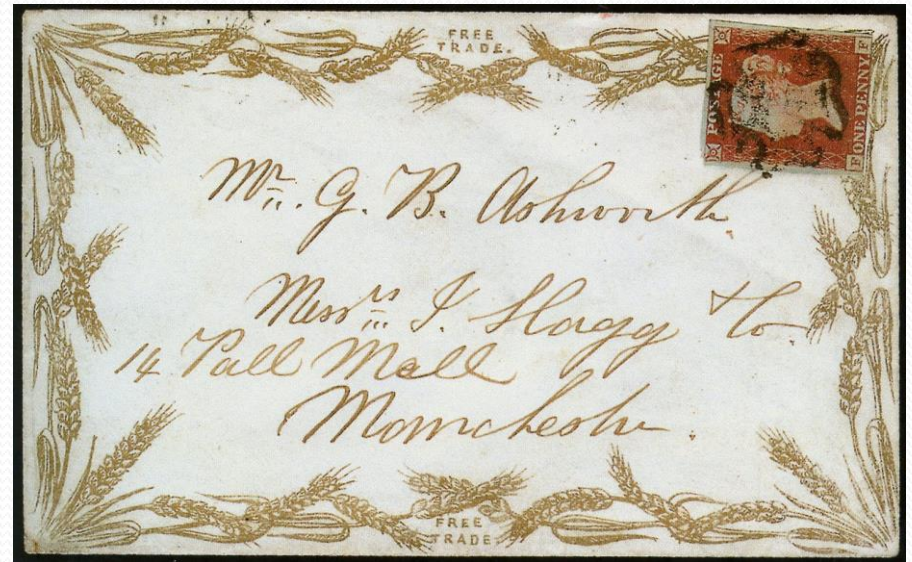 FREE
TRADE.
POSTAGE
ONE PENNY
F F
Mr. G. B. Ashworth
Messrs J. Slagg & Co
14 Pall Mall
Manchester.
FREE
TRADE